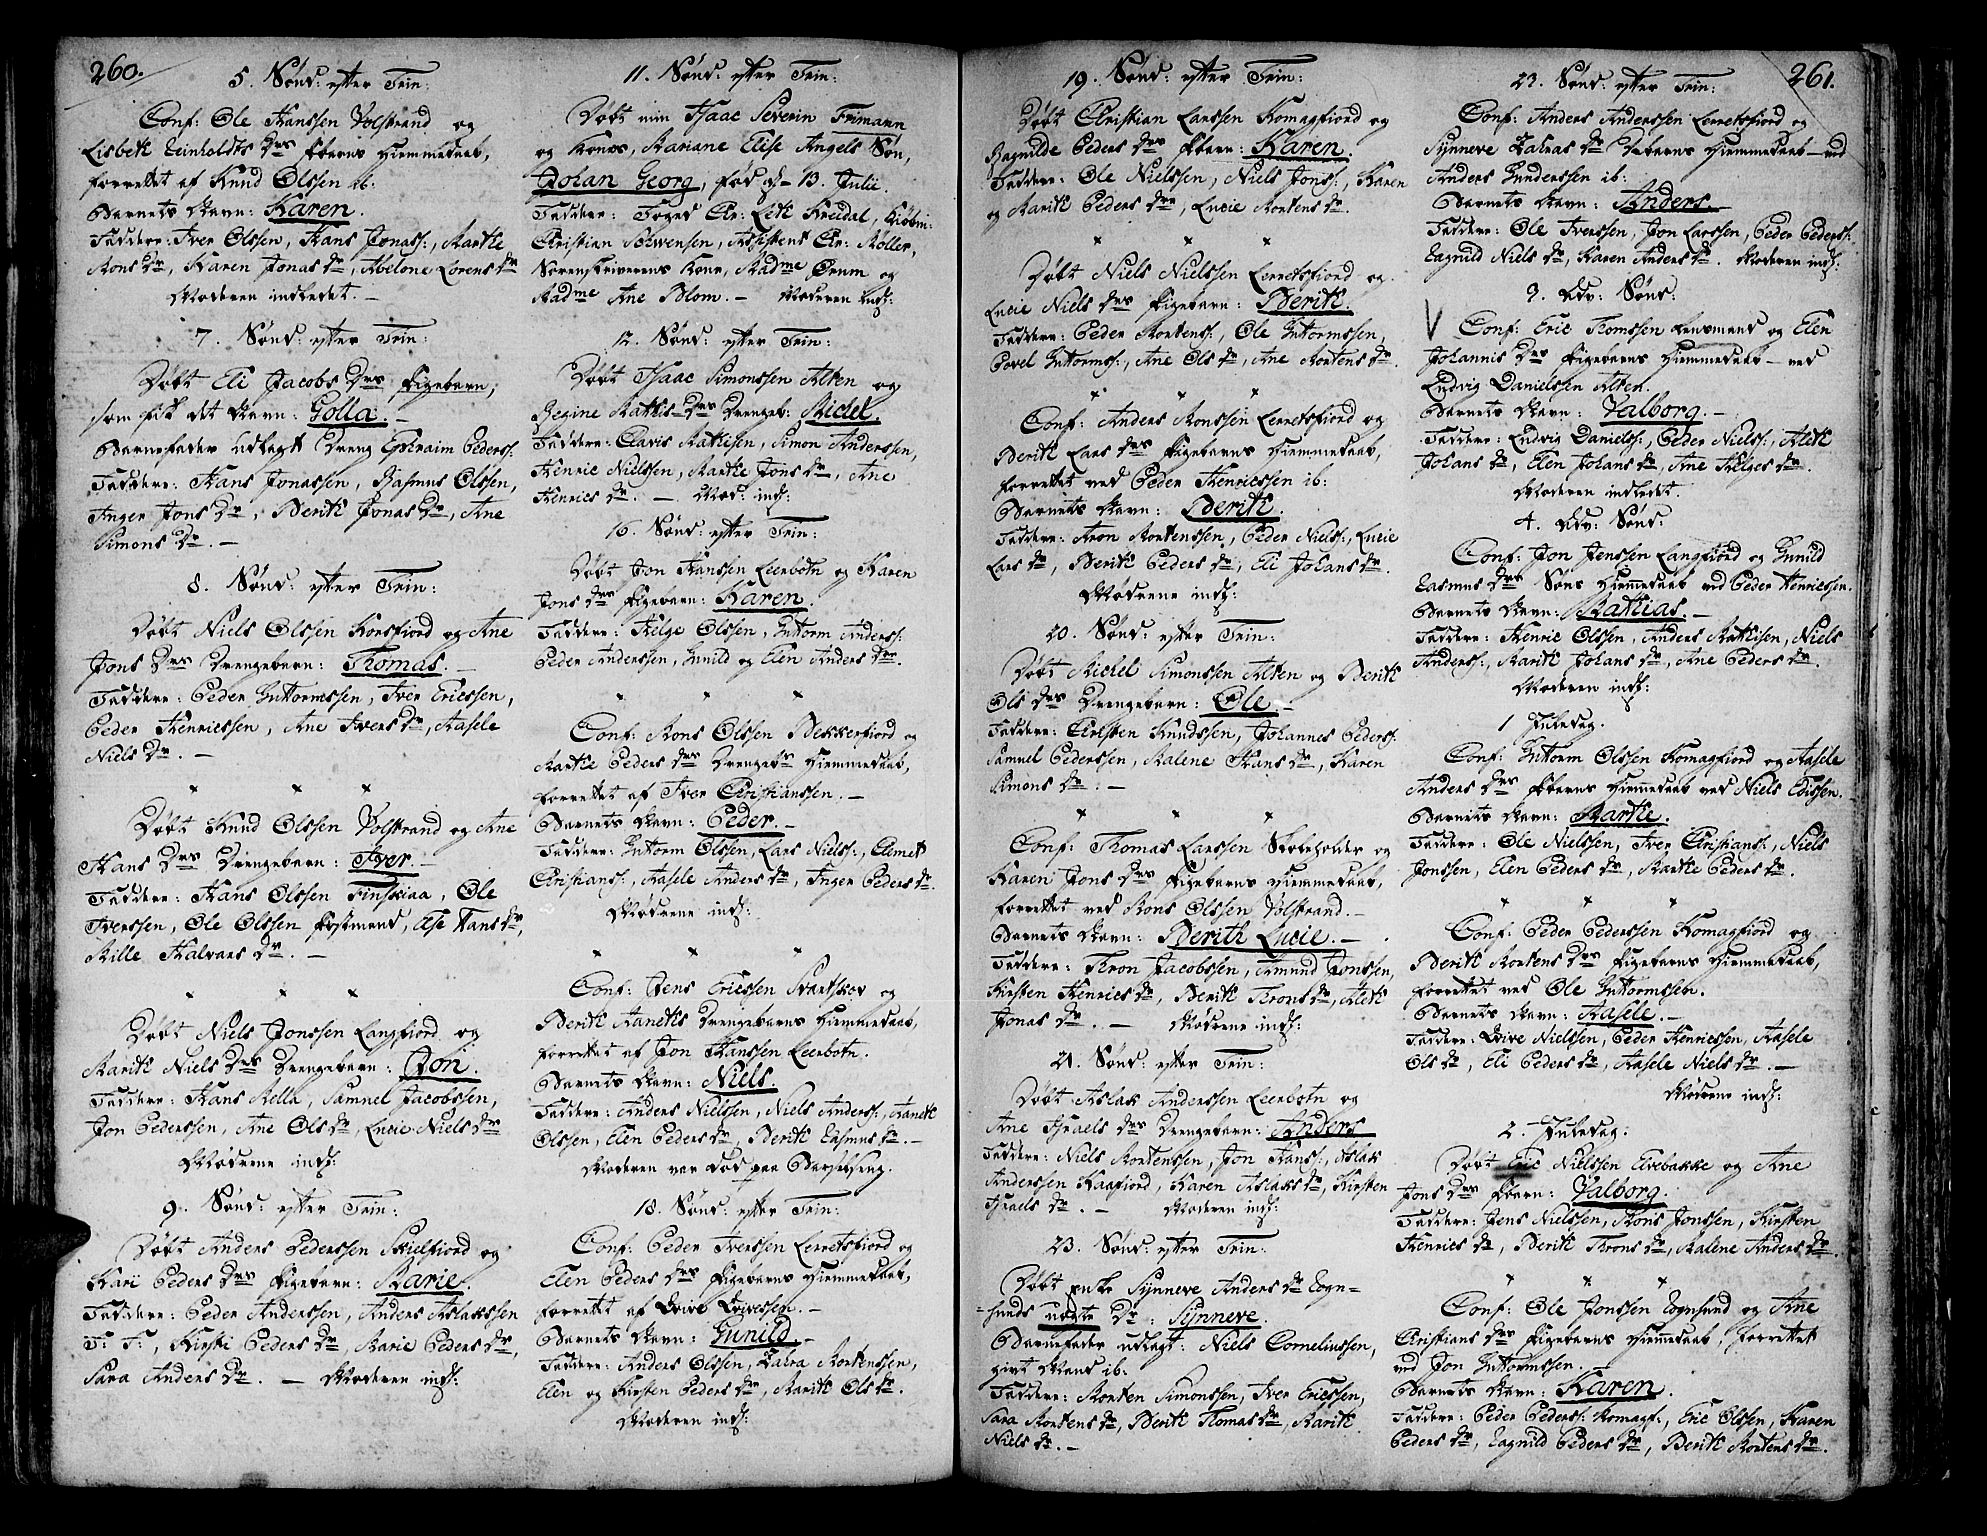 260.
5. Sønd: efter Trin:
Conf: Ole Hanssen Volstrand og
Lisbeth Reinholdts Drs Pbarns Hiemmedaab,
forrettet af Knud Olssen ib:
Barnets Navn: Karen.
Faddere: Iver Olssen, Hans Jonass:, Marthe
Mons Dr, Karen Jonas Dr, Abelone Lorens Dr
Moderen indledet. -
7. Sønd: efter Trin:
Døbt Eli Jacobs Drs Pigebarn,
som fik det Navn: Golla. -
Barnefader udlagt Dreng Ephraim Peders:
Faddere: Hans Jonassen, Rasmus Olssen,
Inger Jons Dr, Berith Jonas Dr, Ane
Simons Dr. -
8. Sønd: efter Trin:
Døbt Niels Olssen Korsfiord og Ane
Jons Drs Drengebarn: Thomas. -
Faddere: Peder Guttormssen, Iver Ericssen,
Peder Henricssen, Ane Ivers Dr, Aasele
Niels Dr. -
" " "
Døbt Knud Olssen Volstrand og Ane
Hans Drs Drengebarn: Iver. -
Faddere: Hans Olssen Finskiaa, Ole
Iverssen, Ole Olssen Postmand, Else Hans Dr,
Mille Halvars Dr. -
" " "
Døbt Niels Jonssen Langfiord og
Marith Niels Drs Drengebarn: Jon.
Faddere: Hans Mella, Samuel Jacobssen,
Jon Pederssen, Ane Ols Dr, Lucie Niels Dr
Mødrene inds:
9. Sønd: efter Trin:
Døbt Anders Pederssen Skielfiord og
Kari Peders Drs Pigebarn: Marie.
Faddere: Peder Anderssen, Anders Aslakssen
F: F:, Kirsti Peders Dr, Marie Peders Dr,
Sara Anders Dr. - Moderen inds:
11. Sønd: efter Trin:
Døbt min Isaac Severin Frimann
og Kones, Mariane Elise Angels Søn,
Johan Georg, fød d. 13. Julii.
Faddere: Foged Hr: Leth Kreidal, Kiøbm:
Christian Schwensen, Assistent Hr: Møller,
Sorenskriverens Kone, Madme Ørum og
Madme Ane Blom. - Moderen inds:
12. Sønd: efter Trin:
Døbt Isaac Simonssen Alten og
Regine Mathis-Drs Drengeb: Michel.
Faddere: Clavis Mathisen, Simon Anderssen,
Henric Nielssen, Marthe Jons Dr, Ane
Henrics Dr. - Mod: inds:
16. Sønd: efter Trin:
Døbt Jon Hanssen Leerbotn og Karen
Jons Drs Pigebarn: Karen.
Faddere: Helge Olssen, Guttorm Anderss:
Peder Anderssen, Gunild og Elen Anders Dre.
" " "
Conf: Mons Olssen Bekkerfiord og
Marthe Peders Drs Drengebs Hiemmedaab,
forrettet af Iver Christianssen. -
Barnets Navn: Peder. -
Faddere: Guttorm Olssen, Lars Nielss:, Clemet
Christianss:, Aasele Anders Dr, Inger Peders Dr.
Mødrene inds:
" " "
Conf: Jens Ericssen Svartskov og
Berith Aaneths Drengebarns Hiemmedaab,
forrettet af Jon Hanssen Leerbotn.
Barnets Navn: Niels.
Faddere: Anders Nielssen, Niels Anderss:, Aaneth
Olssen, Elen Peders Dr, Berith Rasmus Dr. -
Moderen var død paa Barselseng.
18. Sønd: efter Trin:
Conf: Peder Iverssen Lerretsfiord og
Elen Peders Drs Pigebarns Hiemmedaab,
forrettet af Evive Evivessen. -
Barnets Navn: Gunild. -
Faddere: Anders Olssen, Zahra Mortenssen,
Elen og Kirsten Peders Dr, Marith Ols Dr.
Moderen inds:
19. Sønd: efter Trin:
Døbt Christian Larssen Komagfiord og
Ragnilde Peders Drs Pbarn: Karen.
Faddere: Ole Nielssen, Niels Jonss:, Karen
og Marith Peders Dre, Lucie Mortens Dr.
" " "
Døbt Niels Nielssen Lerretsfiord og
Lucie Niels Drs Pigebarn: Berith.
Faddere: Peder Mortenss:, Ole Guttormssen,
Povel Guttormss:, Ane Ols Dr, Ane Mortens Dr.
" " "
Conf: Anders Monssen Lerretsfiord og
Berith Lars Drs Pigebarns Hiemmedaab,
forrettet ved Peder Henricssen ib:
Barnets Navn: Berith.
Faddere: Aron Mortenssen, Peder Nielss:, Lucie
Lars Dr, Berith Peders Dr, Eli Johans Dr.
Mødrene inds:
20. Sønd: efter Trin:
Døbt Michel Simonssen Alten og Berith
Ols Drs Drengebarn: Ole. -
Faddere: Christen Knudssen, Johannes Pederss:
Samuel Pederssen, Malene Hans Dr, Karen
Simons Dr. -
" " "
Conf: Thomas Larssen Skoteholder og
Karen Jons Drs Pigebarns Hiemmedaab,
forrettet ved Mons Olssen Volstrand. -
Barnets Navn: Berith Lucie. -
Faddere: Thron Jacobssen, Amund Jonssen,
Kirsten Henrics Dr, Berith Throns Dr, Aleth
Jonas Dr. - Mødrene inds:
21. Sønd: efter Trin:
Døbt Aslak Anderssen Leerbotn og
Ane Israels Drs Drengebarn: Anders
Faddere: Niels Mortenssen, Jon Hanss:, Aslak
Anderssen Kaafiord, Karen Aslaks Dr, Kirsten
Israels Dr. - Moderen inds:
23. Sønd: efter Trin:
Døbt Enke Synneve Anders Dr Rogn-
sunds uægte Dr: Synneve.
Barnefader udlagt: Niels Corneliussen,
givt Mand ib:
Faddere: Morten Simonssen, Iver Ericssen,
Sara Mortens Dr, Berith Thomas Dr, Marith
Niels Dr. -
261.
23. Sønd: efter Trin:
Conf: Anders Anderssen Lerretsfiord og
Synneve Zahras Dr Dbarns Hiemmedaab ved
Anders Gunderssen ib:
Barnets Navn: Anders
Faddere: Ole Iverssen, Jon Larssen, Peder Pederss:
Ragnild Niels Dr, Karen Anders Dr. Moderen inds:
3. Adv: Sønd:
Conf: Eric Thomssen Lensmand og Elen
Johannis Drs Pigebarns Hiemmedaab ved
Ludvig Danielsen Alten.
Barnets Navn: Valborg. -
Faddere: Ludvig Danielss:, Peder Nielss:, Aleth
Johans Dr, Elen Johans Dr, Ane Helges Dr.
Moderen indledet.
4. Adv: Sønd:
Conf: Jon Jenssen Langfiord og Gunild
Rasmus Drs Søns Hiemmedaab ved Peder Henricssen.
Barnets Navn: Mathias. -
Faddere: Henric Olssen, Anders Mathisen, Niels
Anderss:, Marith Johans Dr, Ane Peders Dr.
Moderen inds:
1 Juledag.
Conf: Guttorm Olssen Komagfiord og Aasele
Anders Drs Pbarns Hiemmedaab ved Niels Edissen.
Barnets Navn: Marthe.
Faddere: Ole Nielssen, Iver Christianss:, Niels
Jonssen, Elen Peders Dr, Marthe Peders Dr.
" " "
Conf: Peder Pederssen Komagfiord og
Berith Mortens Drs Pigebarns Hiemmedaab,
forrettet ved Ole Guttormssen.
Barnets Navn: Aasele. -
Faddere: Evive Nielssen, Peder Henricssen, Aasele
Ols Dr, Eli Peders Dr, Aasele Niels Dr. -
Mødrene inds:
2. Juledag:
Døbt Eric Nielssen Elvebakke og Ane
Jons Drs Pbarn: Valborg.
Faddere: Jens Nielssen, Mons Jonssen, Kirsten
Henrics Dr, Berith Throns Dr, Malene Anders Dr.
" " "
Conf: Ole Jonssen Rognsund og Ane
Christians Drs Pigebarns Hiemmedaab, forrettet
ved Jon Guttormssen. -
Barnets Navn: Karen.
Faddere: Peder Pederss: Komagf:, Eric Olssen, Karen
Peders Dr, Ragnild Peders Dr, Berith Mortens Dr.